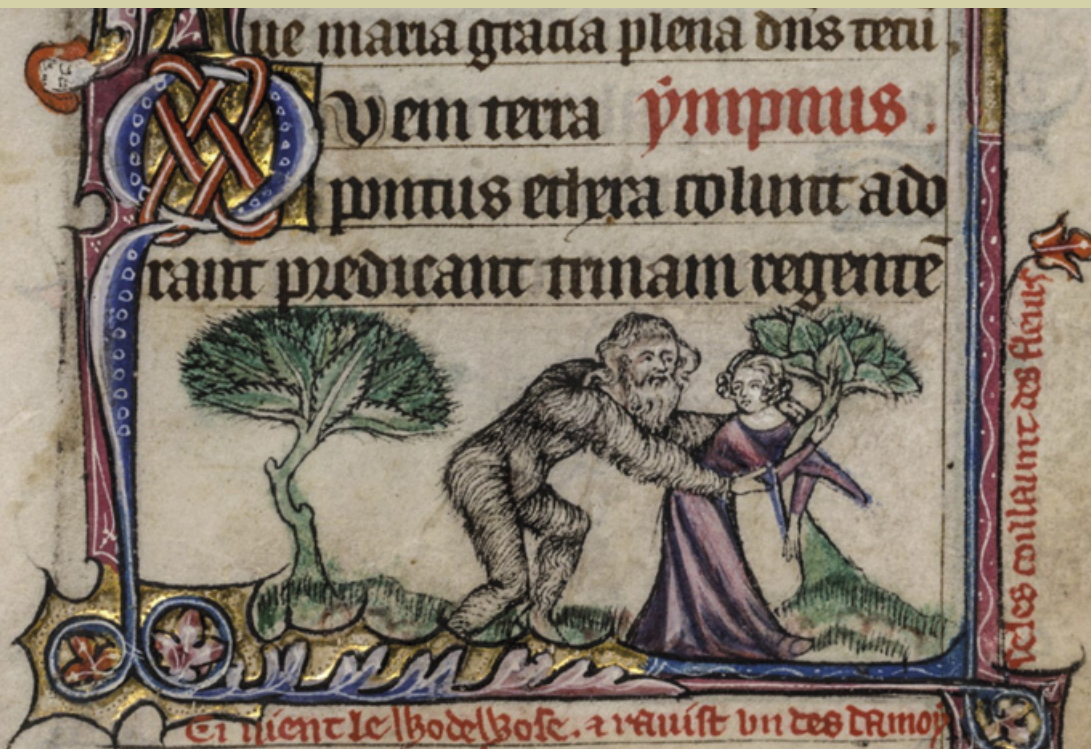 Aue maria gracia plena dn̄s tecū .
Quem terra ẏmpnus .
pontus ethera colunt ado
rant predicant trinam regentē
Ci uient le Wodewose . & rauist vn des damoy
seles coillaunt des fleurs